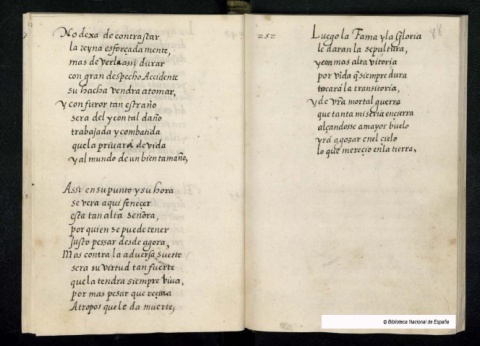 No dexa de contrastar
la reyna esforçadamente,
mas de verla assi durar
con gran despecho Accidente
su hacha vendra a tomar,
Y con furor tan estraño
sera del y con tal daño
trabajada y combatida
que la privara de vida
y al mundo de un bien tamaño,
Assi en su punto y su hora
se vera aqui feneçer
esta tan alta señora,
por quien se puede tener
Justo pessar desde agora,
Mas contra la adversa suerte
sera su virtud tan fuerte
que la tendra siempre viva,
por mas pesar que reciva
Atropos que le da muerte,
252
Luego la Fama y la Gloria
le daran la sepultura,
y con mas alta vitoria
por vida q̃ siempre dura
tocará la transitoria,
Y de vr̃a mortal guerra
que tanta miseria encierra
alçandose a mayor buelo
yrá a gozar en el cielo
lo que mereçio en la tierra,
© Biblioteca Nacional de España